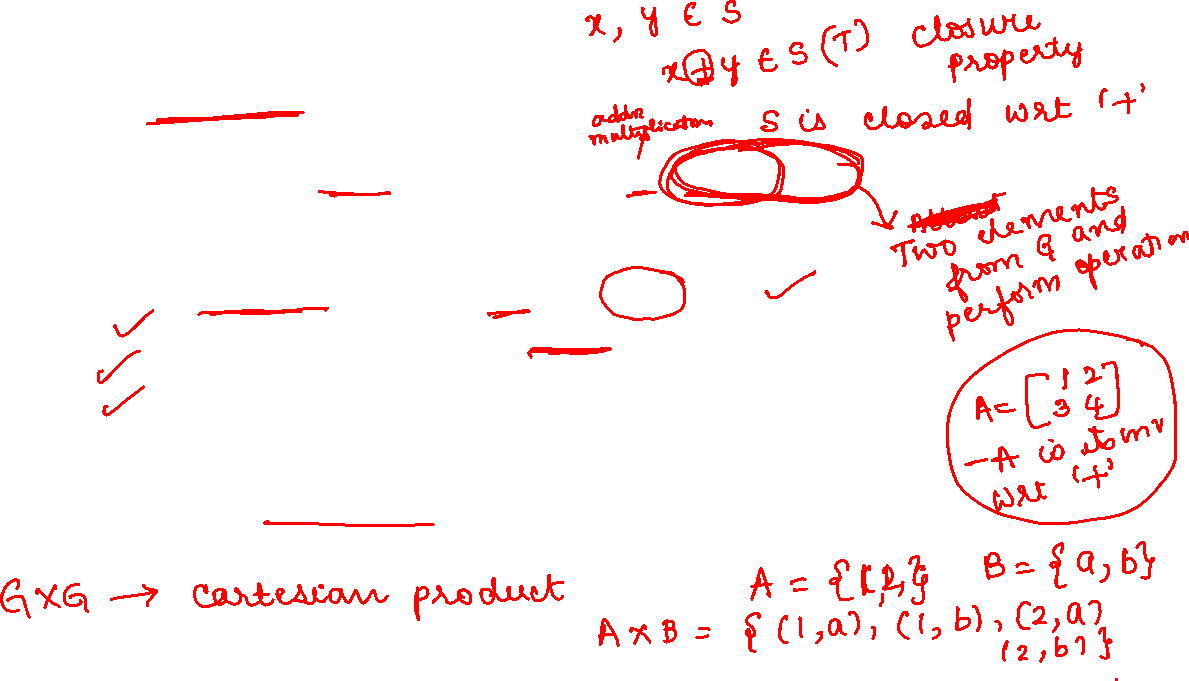 x, y ∈ S
x + y ∈ S (T) closure property
addn
multiplication
S is closed wrt '+'
Two elements
from G and
perform operation
A = [1 2
3 4]
-A is its inv
wrt '+'
G×G → cartesian product
A = {1,2,} B = {a, b}
A × B = {(1,a), (1, b), (2,a)
(2,b)}